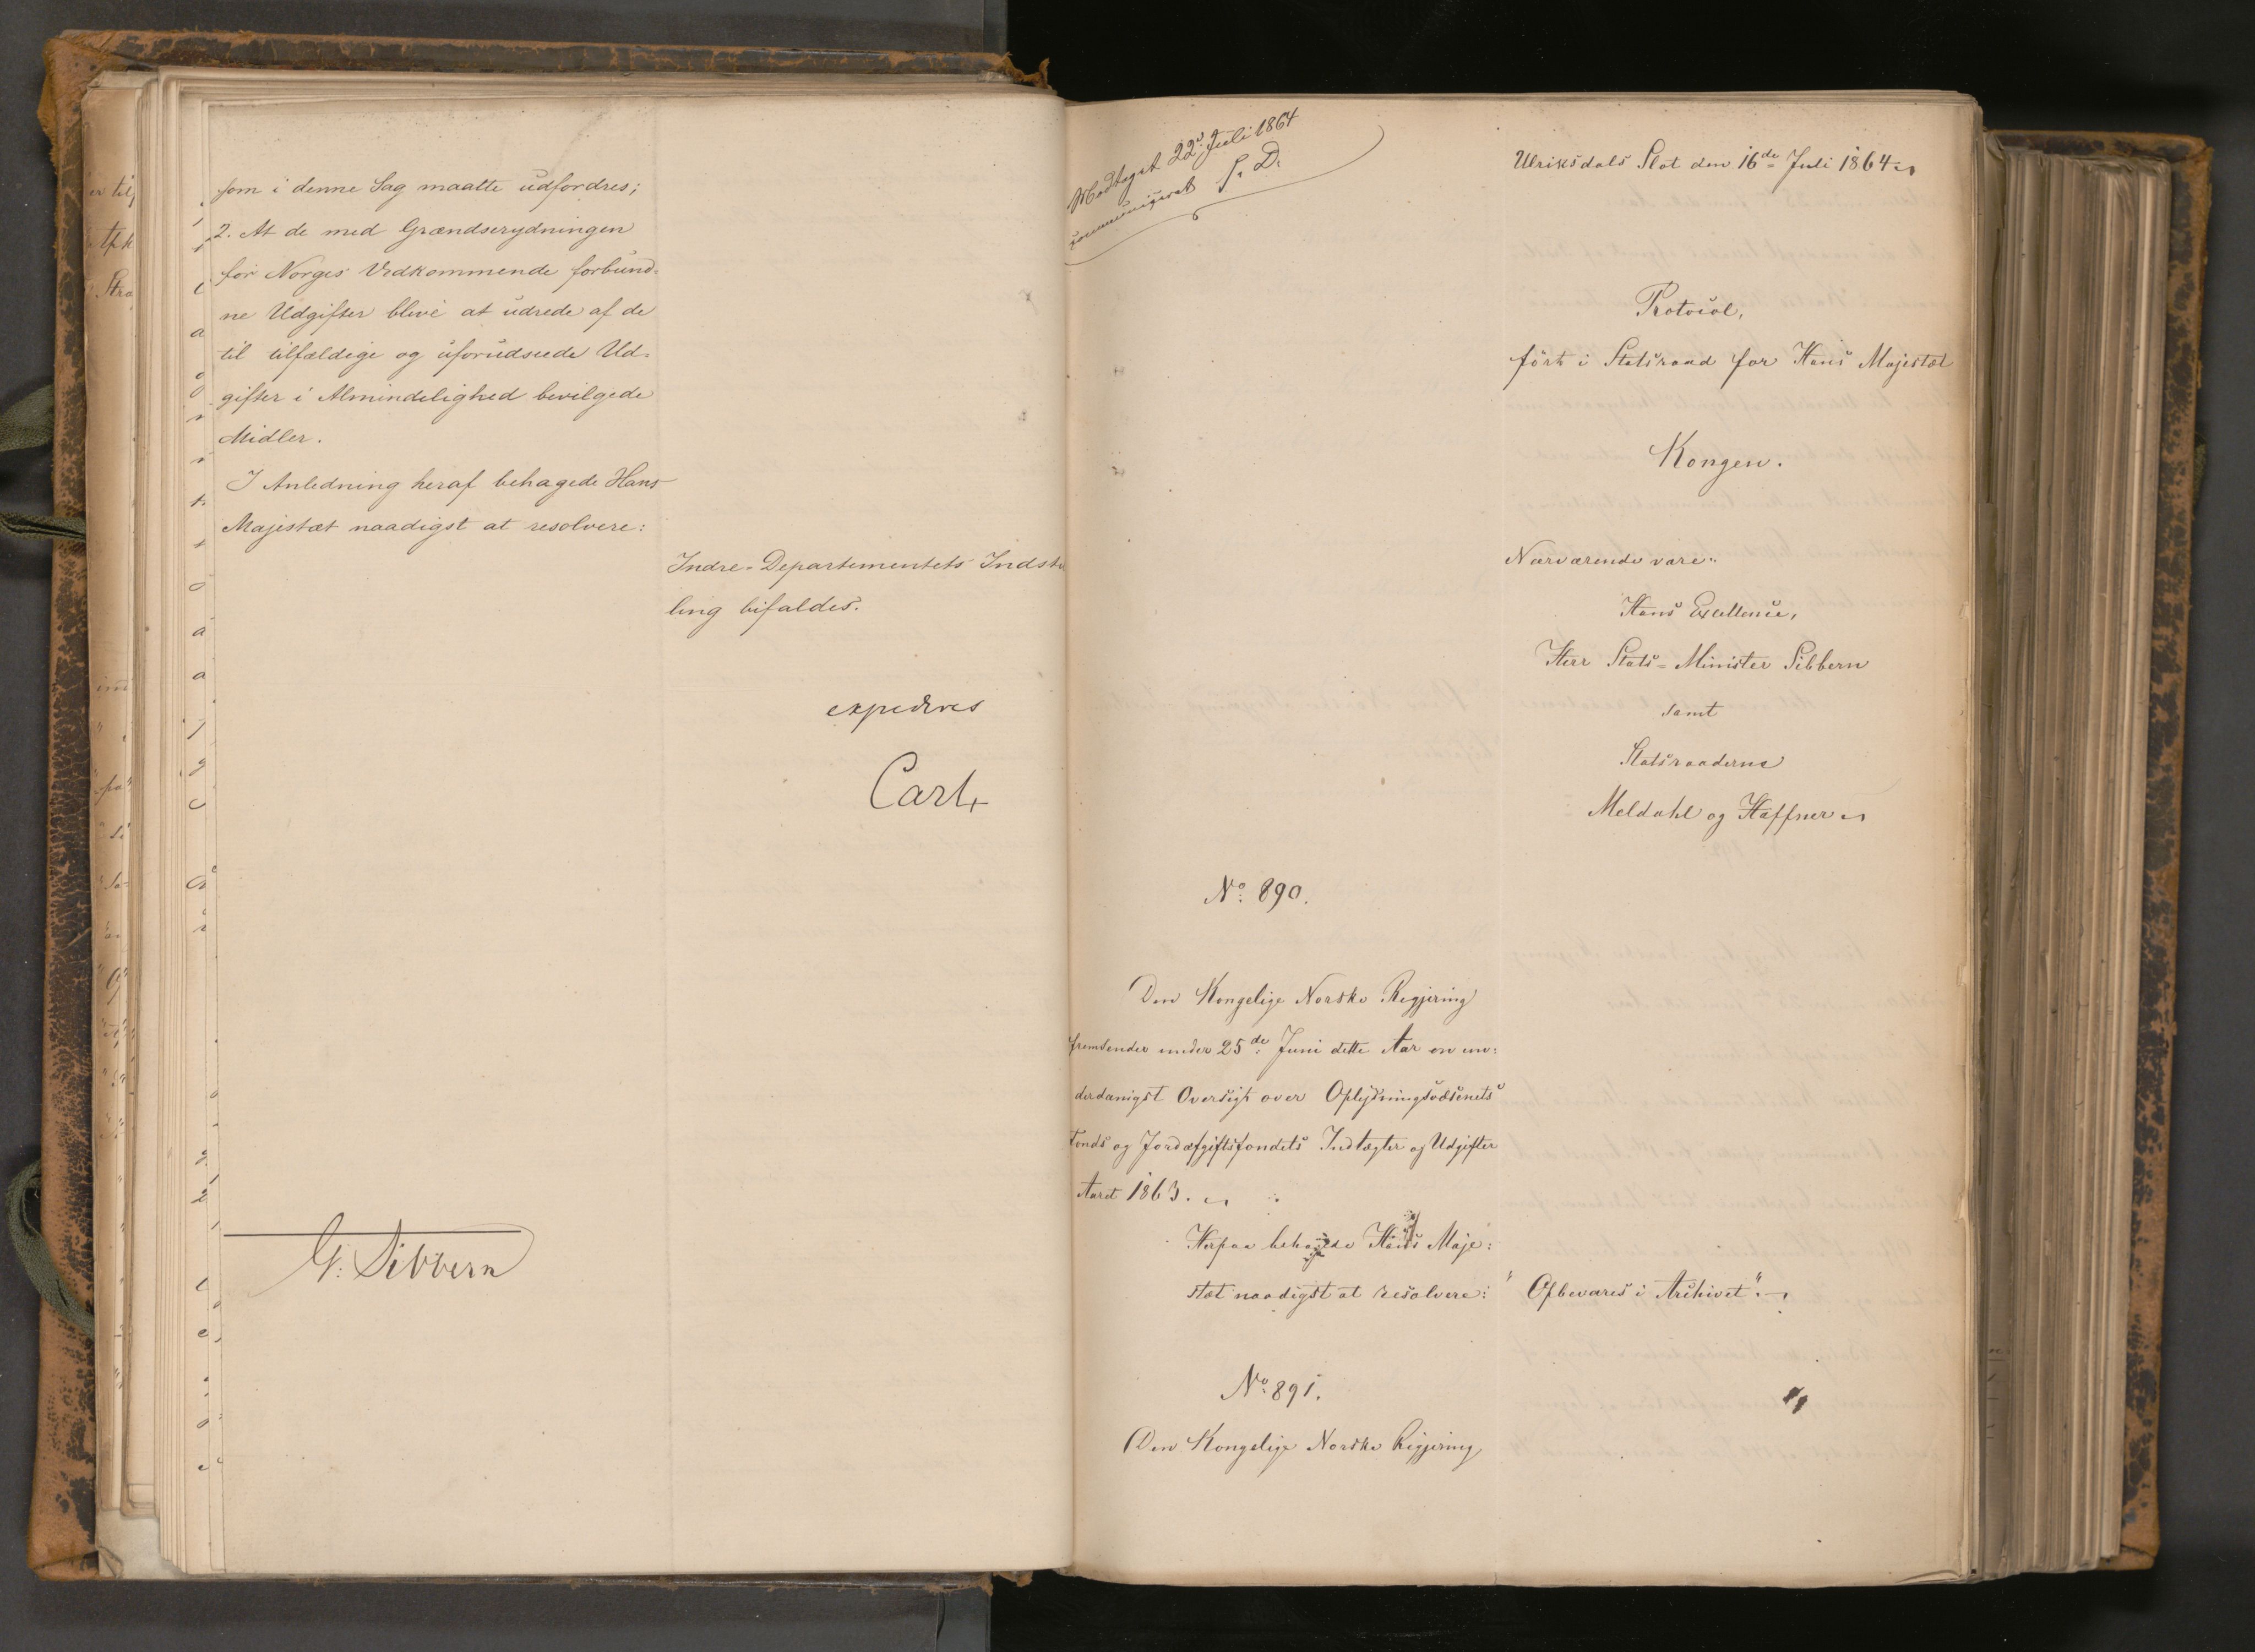 som i denne Sag maatte udfordres;
2. At de med Grændserydningen
for Norges Vedkommende forbund-
ne Udgifter blive at udrede af de
til tilfældige og uforudseede Ud-
gifter i Almindelighed bevilgede
Midler.
I Anledning heraf behagede Hans
Majestæt naadigst at resolvere:
Indre-Departementets Indstil
ling bifaldes.
expederes
Carl
G. Sibbern
Modtaget 22d Juli 1864
communiceret S. D.
Ulriksdals Slot den 16de Juli 1864
Protocol,
ført i Statsraad for Hans Majestæt
Kongen.
Nærværende vare:
Hans Excellence,
Herr Stats-Minister Sibbern
samt
Statsraaderne
Meldahl og Haffner
No. 890.
Den Kongelige Norske Regjering
fremsender under 25de Juni dette Aar en un-
derdanigst Oversigt over Oplysningsvæsenets
Fonds og Jordafgiftsfondets Indtægter og Udgifter
Aaret 1863.
Herpaa behagede Hans Maje-
stæt naadigst at resolvere:
"Opbevares i Archivet".
No. 891.
Den Kongelige Norske Regjering